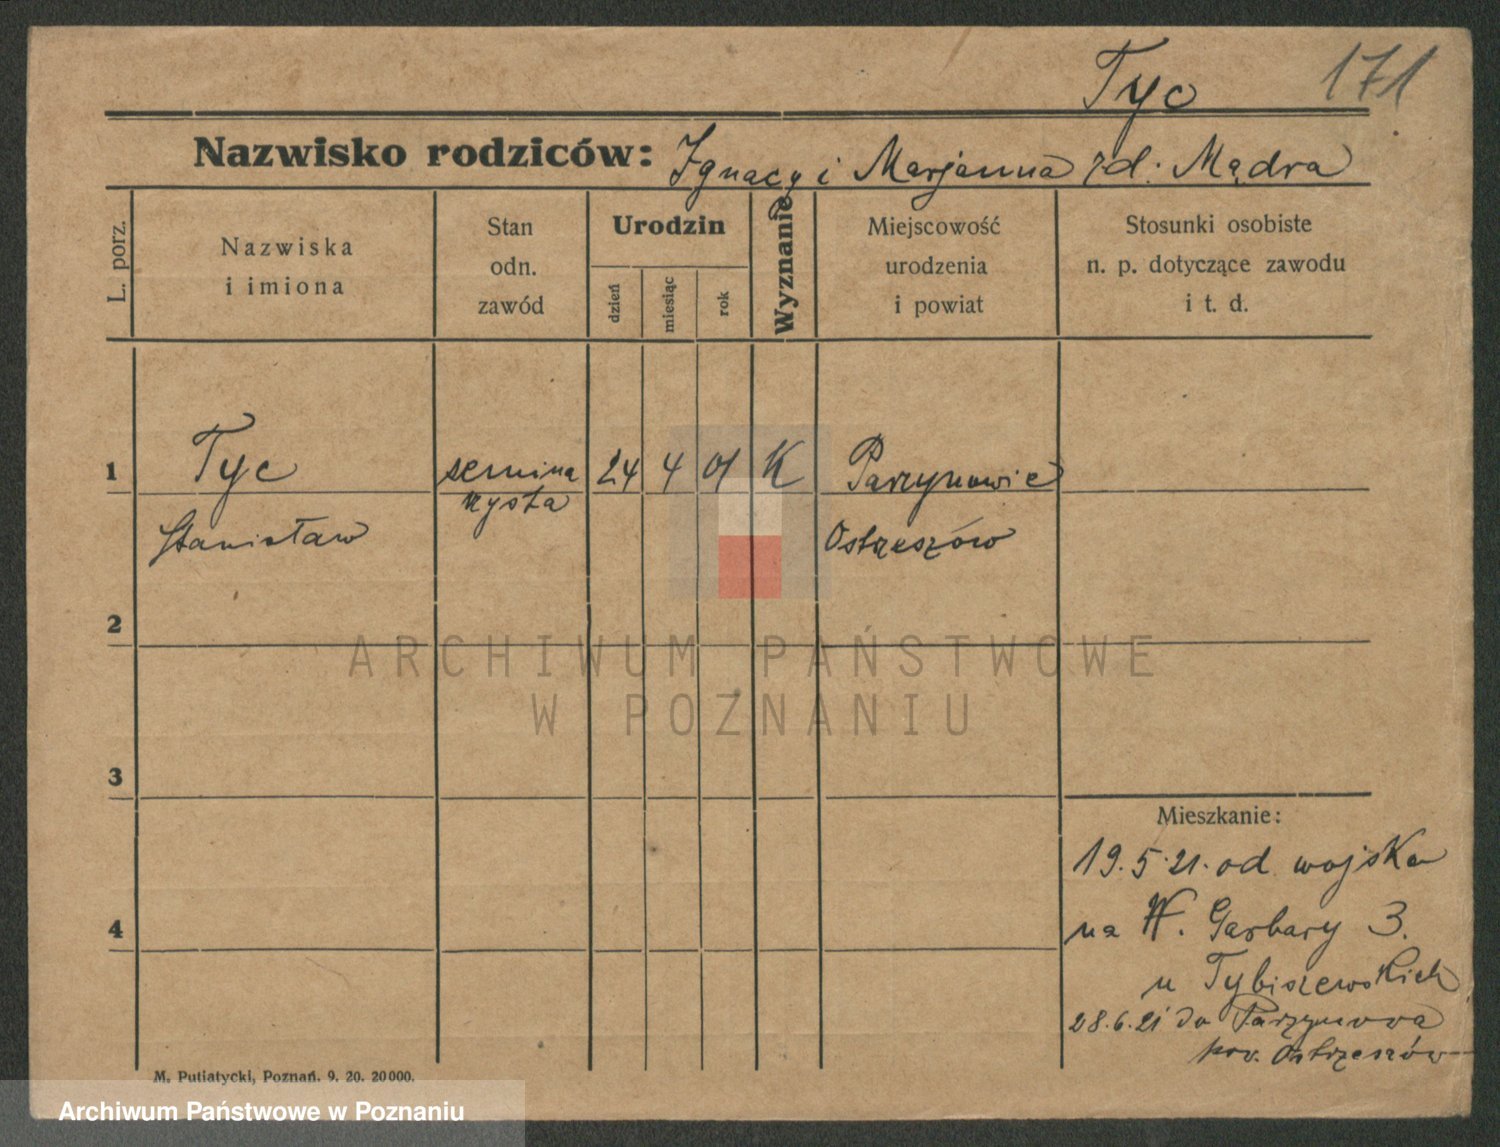 Tyc
171
Nazwisko rodziców: Ignacy i Marjanna zd. Mądra
L. porz.
Nazwiska
i imiona
Stan
odn.
zawód
Urodzin
dzień
miesiąc
rok
Wyznanie
Miejscowość
urodzenia
i powiat
Stosunki osobiste
n. p. dotyczące zawodu
i t. d.
1 Tyc semina 24 4 01 K Parzynowie
rzysta
Stanisław Ostrzeszów
2
ARCHIWUM PAŃSTWOWE
W POZNANIU
3
Mieszkanie:
19.5.21. od wojska
na W. Garbary 3.
4
u Tybiszewskich
28.6.21 do Parzynowa
pow. Ostrzeszów
M. Putiatycki, Poznań. 9. 20. 20000.
Archiwum Państwowe w Poznaniu